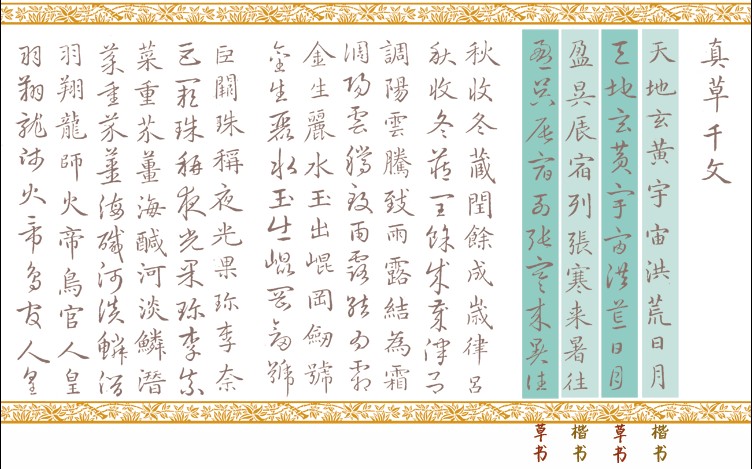 真草千文
天地玄黄宇宙洪荒日月
天地玄黄宇宙洪荒日月
盈昃辰宿列張寒来暑往
盈昃辰宿列張寒来暑往
秋收冬蔵閏餘成歳律呂
秋收冬蔵閏餘成歳律呂
調陽雲騰致雨露結為霜
調陽雲騰致雨露結為霜
金生麗水玉出崐岡劒號
金生麗水玉出崐岡劒號
巨闕珠稱夜光果珍李奈
巨闕珠稱夜光果珍李奈
菜重芥薑海醎河淡鱗潛
菜重芥薑海醎河淡鱗潛
羽翔龍師火帝鳥官人皇
羽翔龍師火帝鳥官人皇
楷书
草书
楷书
草书